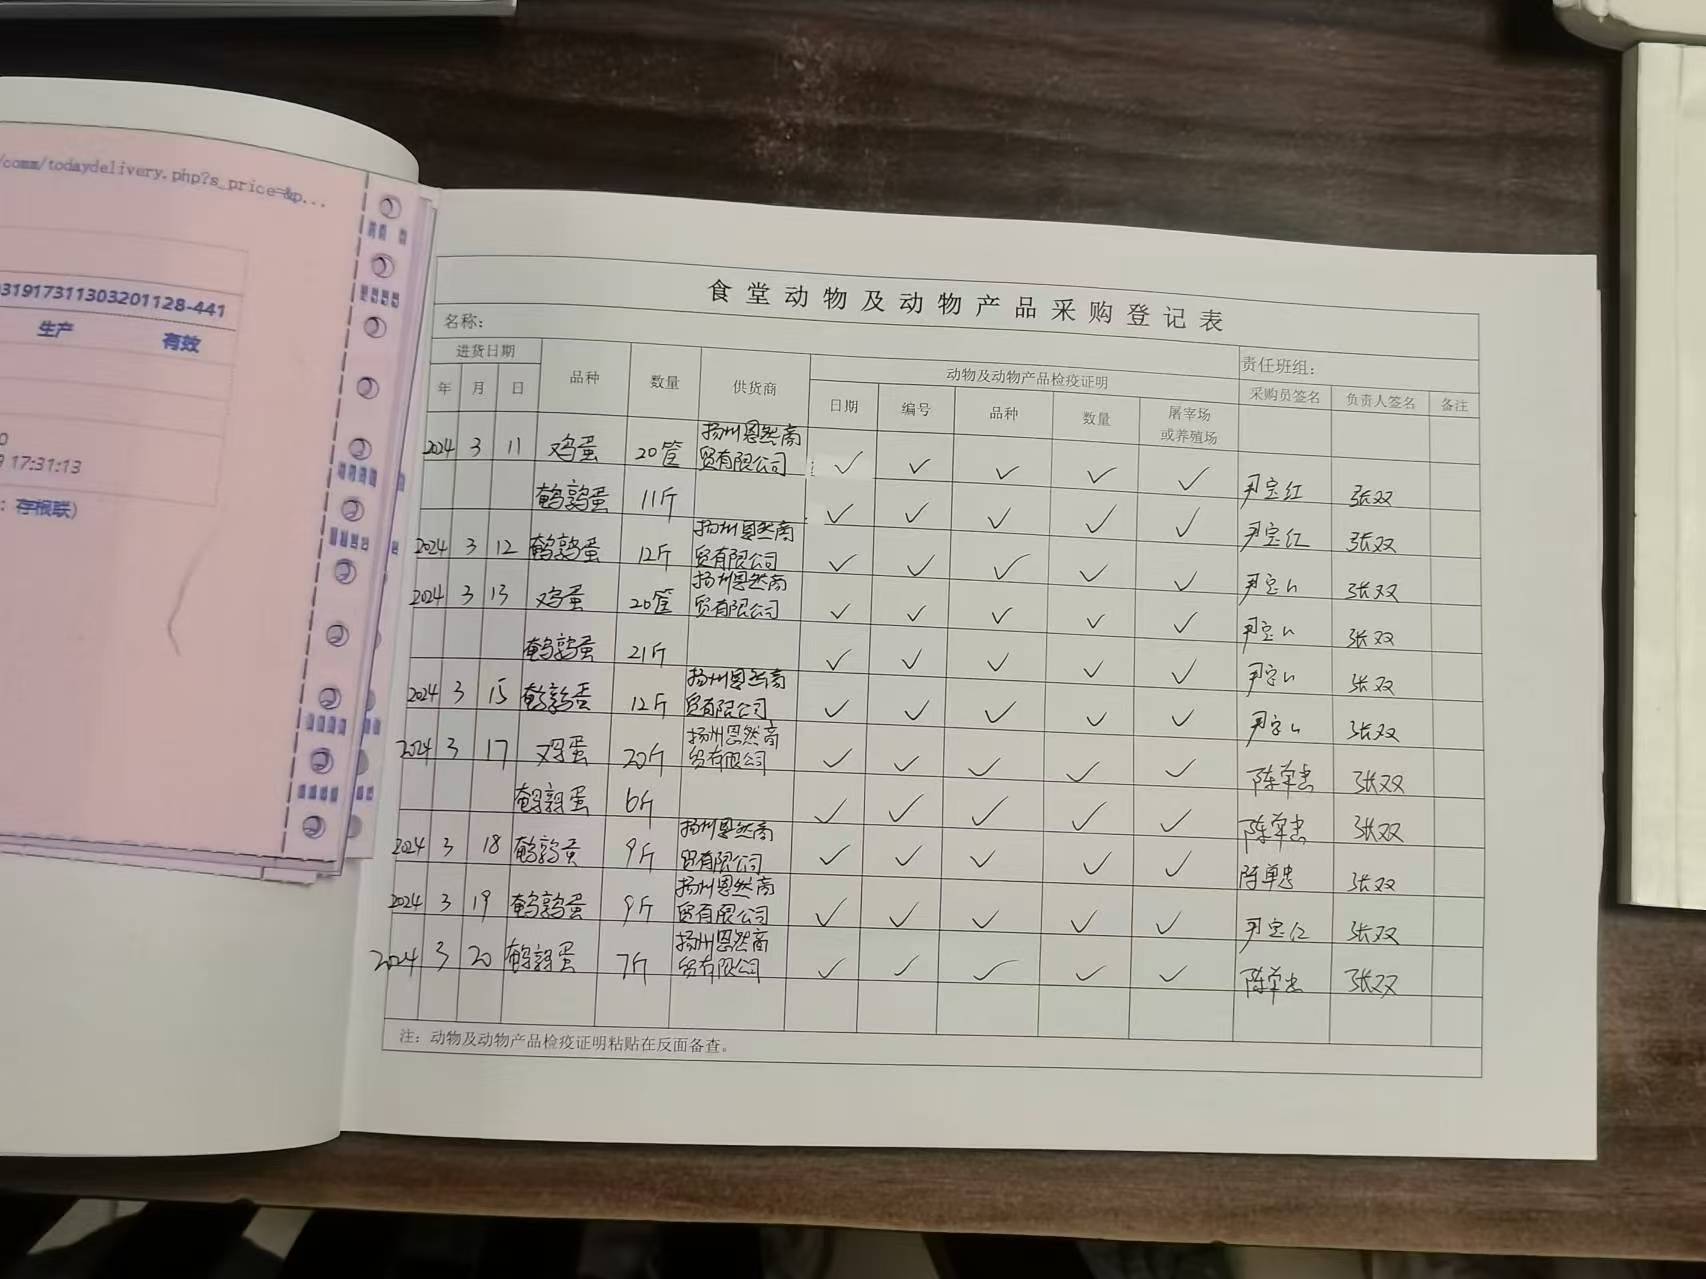 /comm/todaydelivery.php?s_price=&p...
319173113032011 28-441
生产 有效
17:31:13
：存根联）
食堂动物及动物产品采购登记表
名称： 责任班组：
进货日期 品种 数量 供货商 动物及动物产品检疫证明 采购员签名 负责人签名 备注
年 月 日 日期 编号 品种 数量 屠宰场
或养殖场
2024 3 11 鸡蛋 20筐 扬州恩然商
贸有限公司 ✓ ✓ ✓ ✓ ✓ 尹宝红 张双
鹌鹑蛋 11斤 ✓ ✓ ✓ ✓ ✓ 尹宝红 张双
2024 3 12 鹌鹑蛋 12斤 扬州恩然商
贸有限公司 ✓ ✓ ✓ ✓ ✓ 尹宝红 张双
2024 3 13 鸡蛋 20筐 扬州恩然商
贸有限公司 ✓ ✓ ✓ ✓ ✓ 尹宝红 张双
鹌鹑蛋 21斤 ✓ ✓ ✓ ✓ ✓ 尹宝红 张双
2024 3 15 鹌鹑蛋 12斤 扬州恩然商
贸有限公司 ✓ ✓ ✓ ✓ ✓ 尹宝红 张双
2024 3 17 鸡蛋 20斤 扬州恩然商
贸有限公司 ✓ ✓ ✓ ✓ ✓ 陈单忠 张双
鹌鹑蛋 6斤 ✓ ✓ ✓ ✓ ✓ 陈单忠 张双
2024 3 18 鹌鹑蛋 9斤 扬州恩然商
贸有限公司 ✓ ✓ ✓ ✓ ✓ 陈单忠 张双
2024 3 19 鹌鹑蛋 9斤 扬州恩然商
贸有限公司 ✓ ✓ ✓ ✓ ✓ 尹宝红 张双
2024 3 20 鹌鹑蛋 7斤 扬州恩然商
贸有限公司 ✓ ✓ ✓ ✓ ✓ 陈单忠 张双
注：动物及动物产品检疫证明粘贴在反面备查。